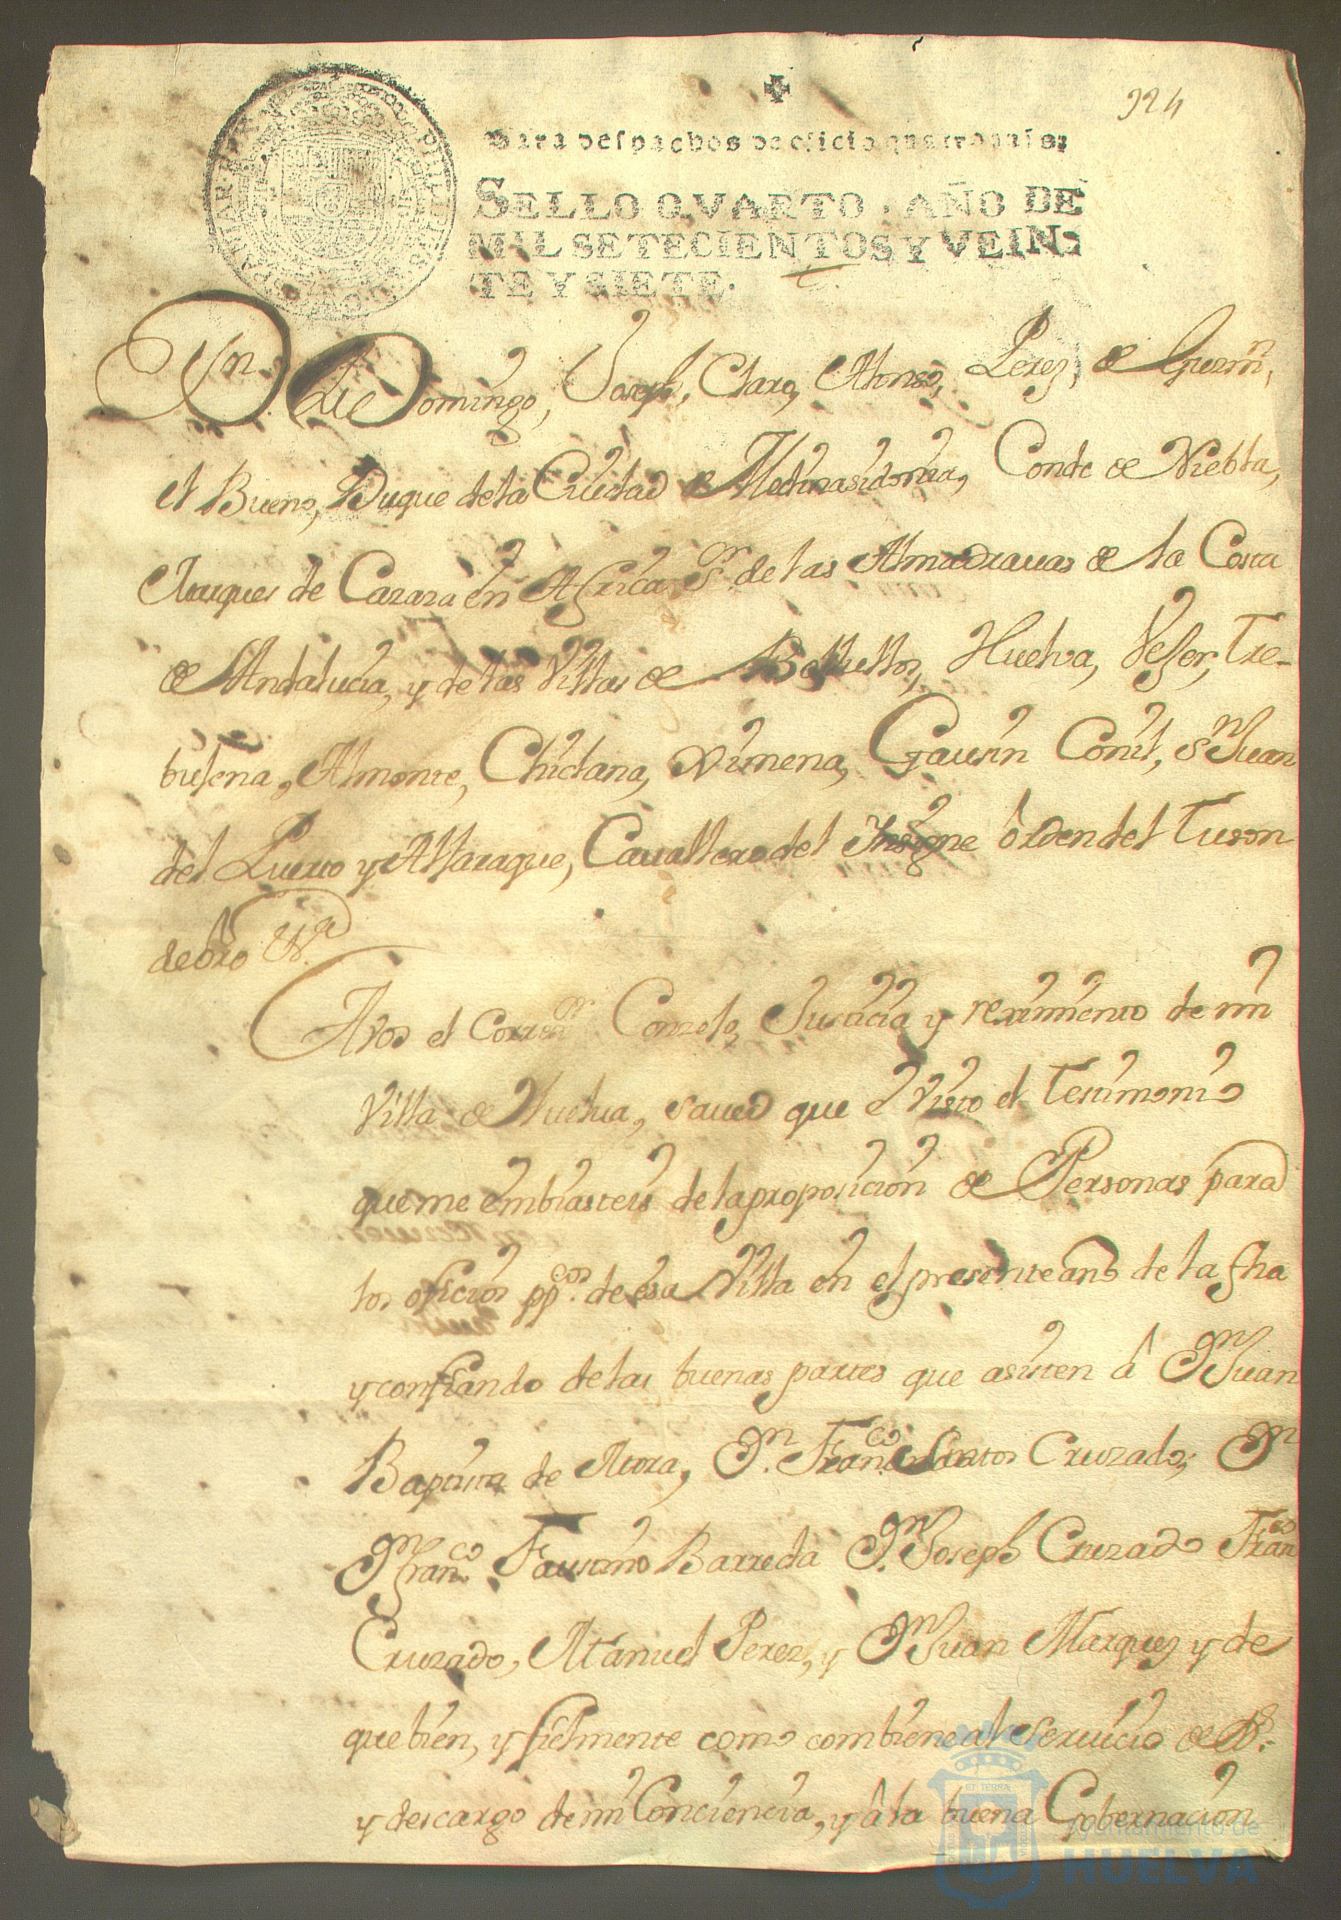 924
Para despachos de oficio quatro mrs.
SELLO QVARTO, AÑO DE
MIL SETECIENTOS Y VEIN-
TE Y SIETE.
Dn. Domingo, Joseph, Claro, Alonso, Perez, de Guzmn,
el Bueno, Duque de la Ciudad de Medinasidonia, Conde de Niebla,
Marques de Cazaza en Africa, Sr. de las Almadrauas de la Costa
de Andalucia, y de las Villas de Bollullos, Huelva, Vejer, Tre-
bujena, Almonte, Chiclana, Ximena, Gausin Conil, Sn Juan
del Puerto y Alfaraque, Cauallero del Insigne orden del Tuson
de oro &a.
A vos el Correxor. Conzejo, Justicia, y reximiento de mi
Villa de Huelva, saued que e Visto el Testimonio
que me embiasteis de la proposicion de Personas para
los oficios ppcos. de esa Villa en el presente año de la fha
y confiando de las buenas partes que asisten â Dn Juan
Baptista de Mora, Dn. Franco. Santos Cruzado, Dn
Dn Franco. Faustino Barreda Dn. Joseph Cruzado Franco
Cruzado, Manuel Perez, y Dn Juan Marquez y de
que bien, y fielmente como combiene al Seruicio de Ds.
y descargo de mi Conciencia, y â la buena Gobernacion
Ayuntamiento de
HUELVA